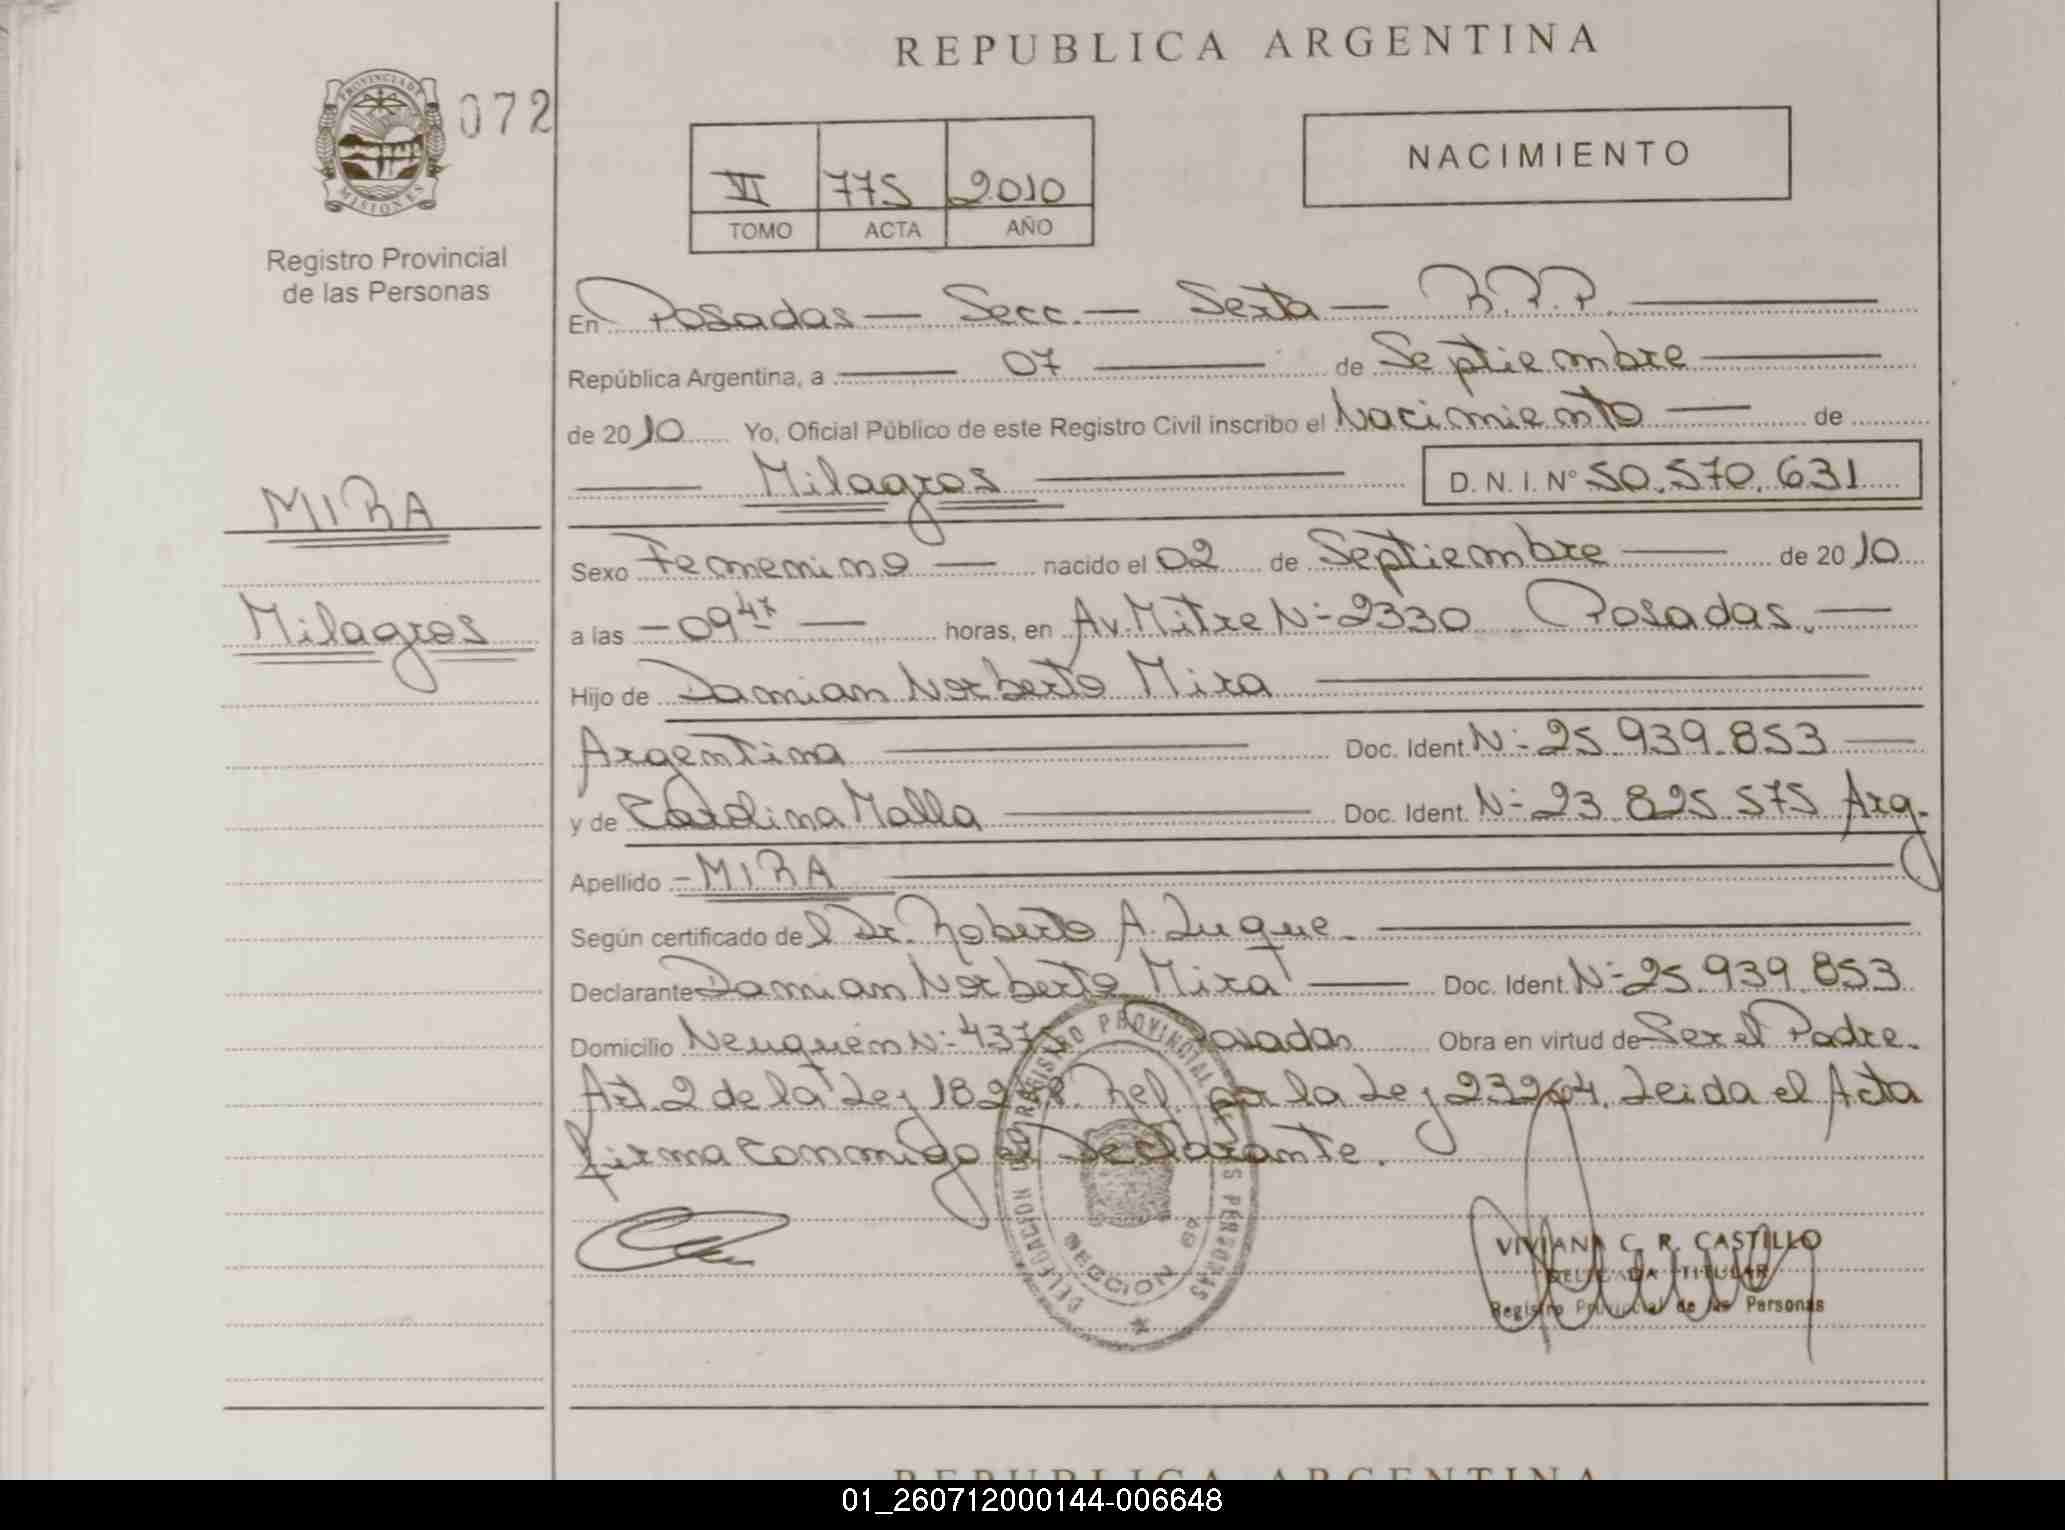 REPUBLICA ARGENTINA
PROVINCIA DE MISIONES
072
Registro Provincial
de las Personas
VI 775 2010
TOMO ACTA AÑO
NACIMIENTO
En Posadas — Secc. — Sexta — R.P.P.
República Argentina, a — 07 — de Septiembre
de 2010 Yo, Oficial Público de este Registro Civil inscribo el Nacimiento — de
— Milagros — D. N. I. Nº 50.570.631
MIRA
Milagros
Sexo Femenino — nacido el 02 de Septiembre — de 2010
a las — 09 47 — horas, en Av. Mitre Nº 2330 Posadas. —
Hijo de Damian Norberto Mira
Argentina — Doc. Ident. Nº 25.939.853 —
y de Carolina Malla — Doc. Ident. Nº 23.825.575 Arg.
Apellido - MIRA
Según certificado del Dr. Roberto A. Luque.
Declarante Damian Norberto Mira — Doc. Ident. Nº 25.939.853
Domicilio Neuquén Nº Posadas Obra en virtud de Ser el Padre.
Art. 2 de la Ley Ref. por la Ley 23264. Leida el Acta
firma conmigo el Declarante.
DELEGACION DEL REGISTRO PROVINCIAL DE LAS PERSONAS
SECCION 6a
VIVIANA C. R. CASTILLO
DELEGADA TITULAR
Registro Provincial de las Personas
REPUBLICA ARGENTINA
01_260712000144-006648